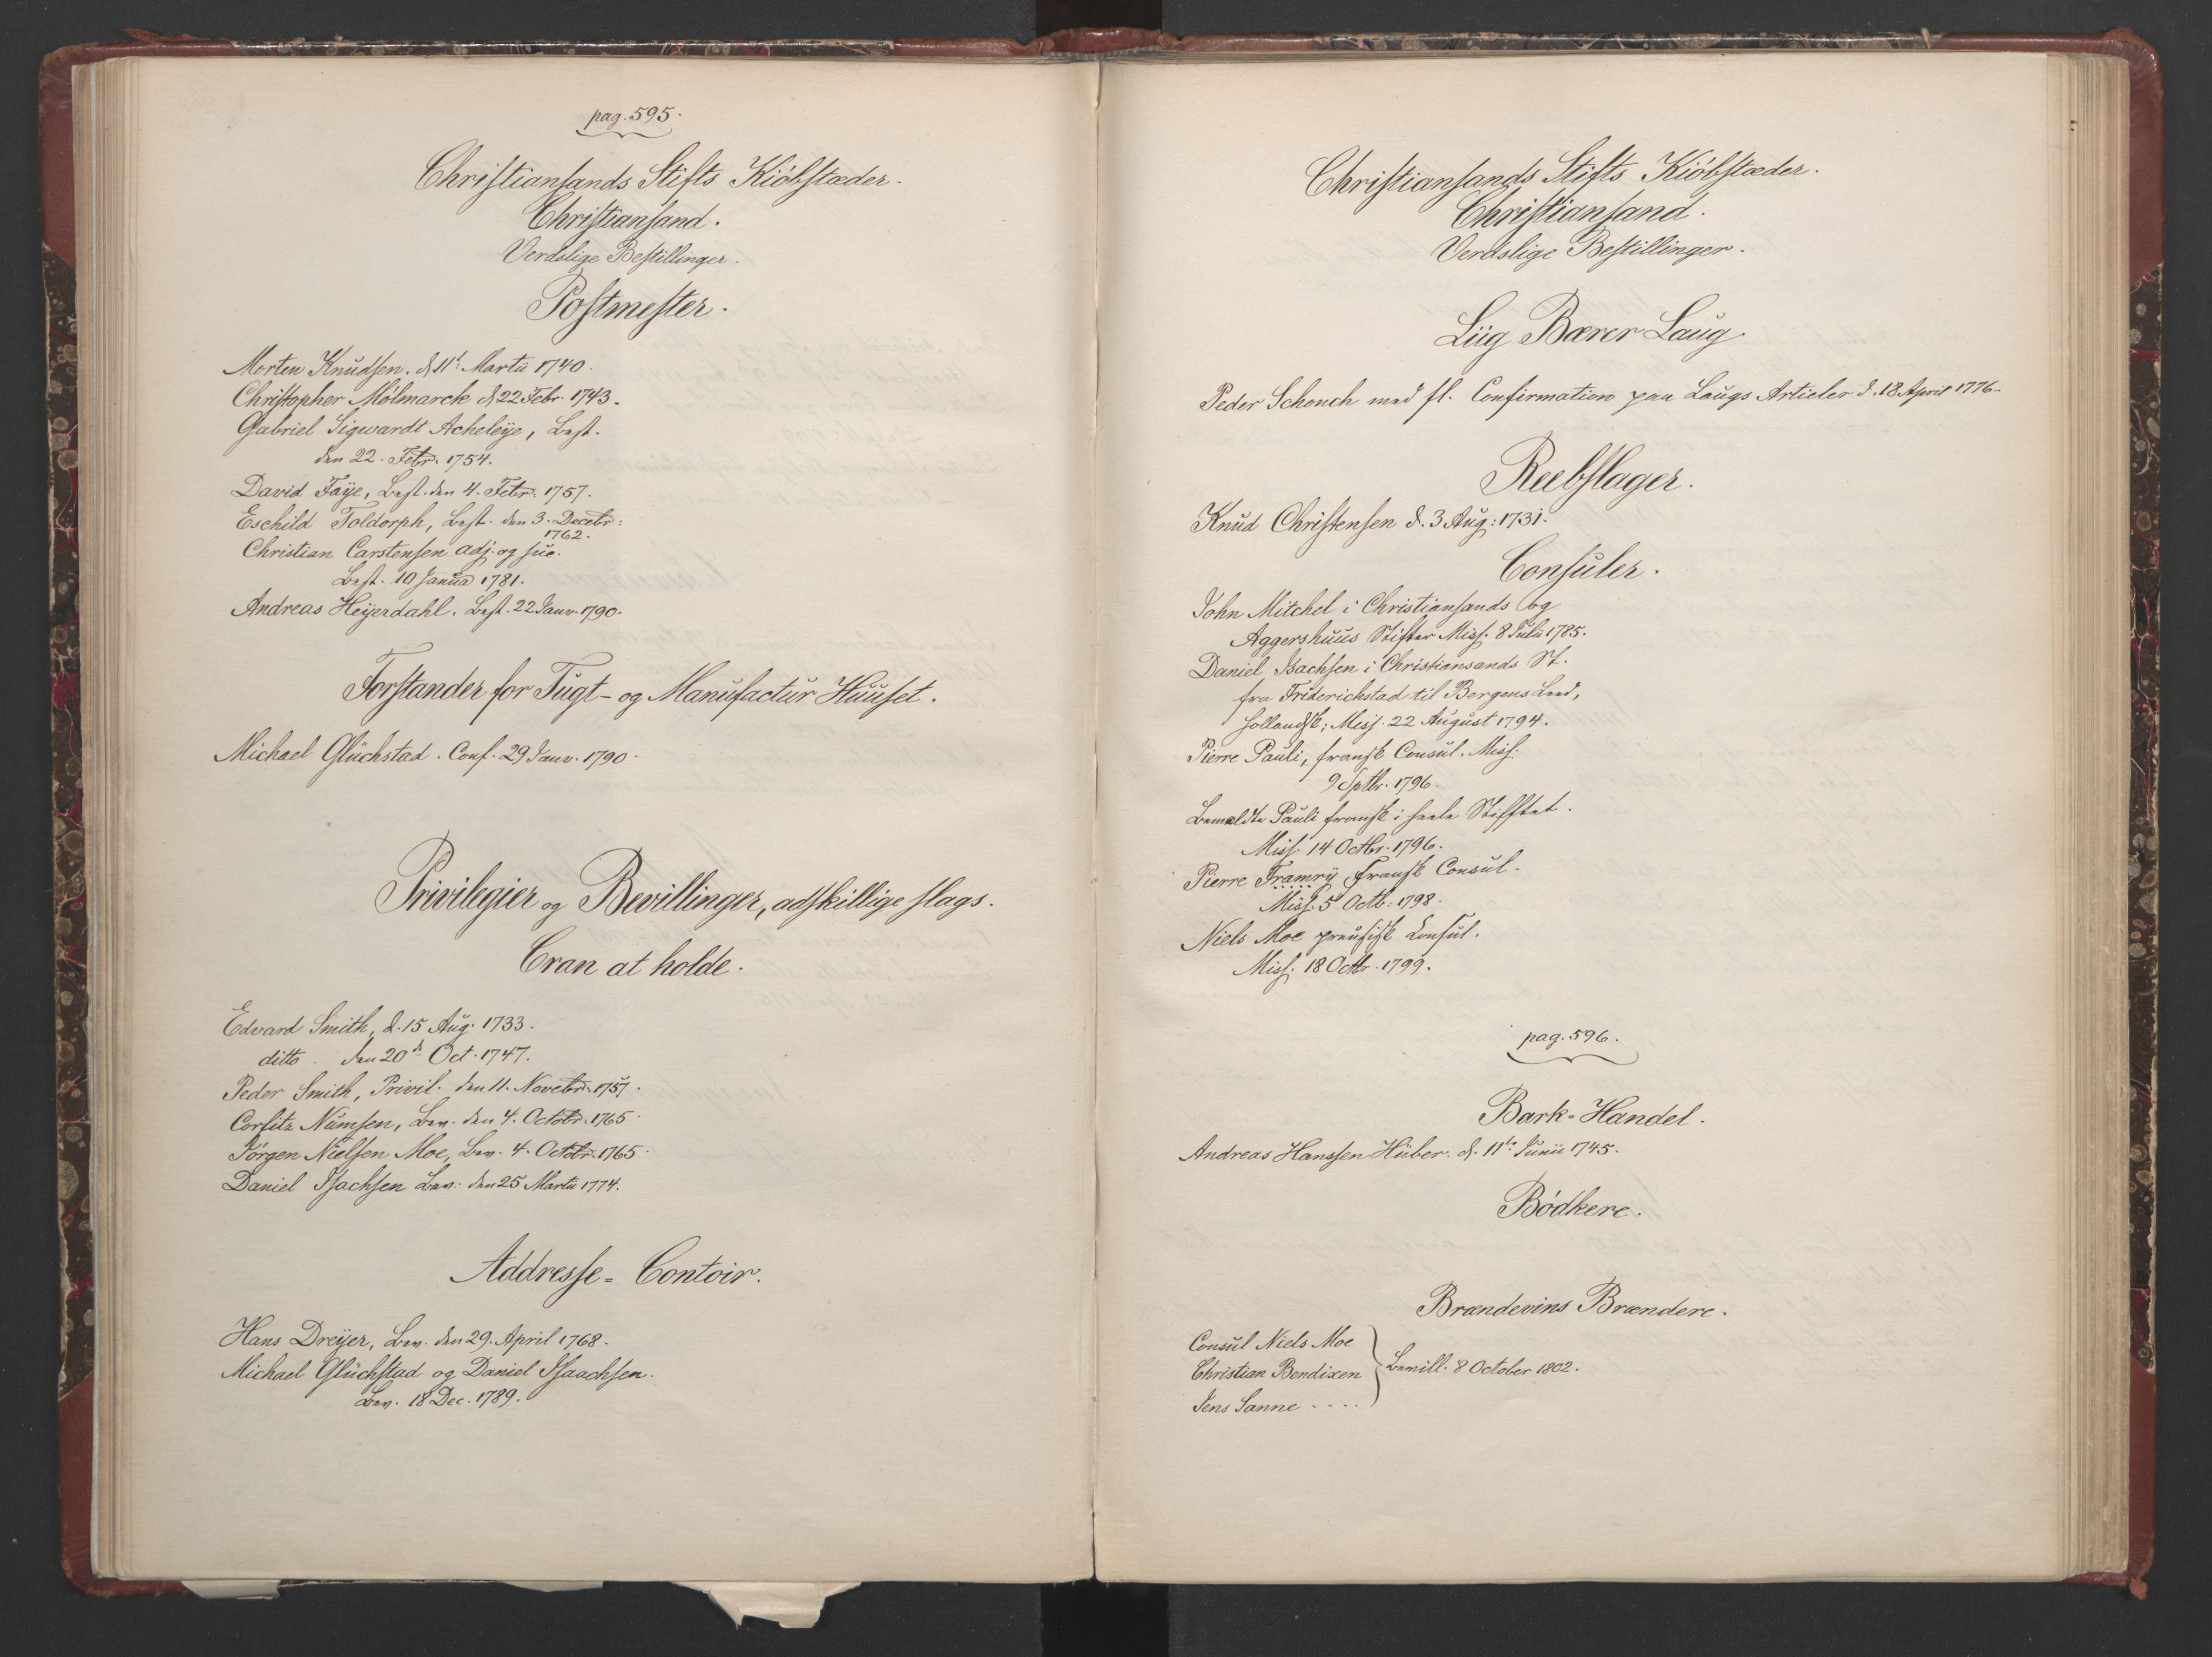 pag. 595.
Christiansands Stifts Kiöbstæder.
Christiansand.
Verdslige Bestillinger.
Postmester.
Morten Knudsen. d. 11t Martii 1740.
Christopher Mölmarck d. 22 Febr. 1743.
Gabriel Sigwardt Acheleÿe, Best.
den 22. Febr. 1754.
David Faÿe, Best. den 4. Febr. 1757.
Eschild Toldorph, Best. den 3. Decebr:
1762.
Christian Carstensen adj. og suc.
Best. 10 Janua 1781.
Andreas Heÿerdahl. Best. 22 Janv. 1790.
Forstander for Tugt- og Manufactur Huuset.
Michael Glückstad. Conf. 29 Janv. 1790.
Privilegier og Bevillinger, adskillige slags.
Cran at holde.
Edvard Smith, d. 15 Aug. 1733.
ditto. den 20d Oct. 1747.
Peder Smith, Privil. den 11. Novebr. 1757.
Corfitz Numsen, Bev. den 4. Octobr. 1765.
Jörgen Nielsen Moe, Bev. 4. Octobr. 1765.
Daniel Isachsen Bev: den 25 Martii 1774.
Addresse=Contoir.
Hans Dreÿer, Bev. den 29. April 1768.
Michael Glückstad og Daniel Isaachsen.
Bev. 18 Dec. 1789.
Christiansands Stifts Kiöbstæder.
Christiansand.
Verdslige Bestillinger.
Liig Bærer Laug
Peder Schonch med fl. Confirmation paa Laugs Articler d. 18 April 1776.
Reebslager.
Knud Christensen d. 3 Aug: 1731.
Consuler.
John Mitchel i Christiansands og
Aggershuus Stifter Miss. 8 Julii 1785.
Daniel Isachsen i Christiansands St.
fra Friderichstad til Bergens Leed,
hollandsk; Miss. 22 August 1794.
Pierre Pauli, fransk Consul. Miss.
9 Sptbr. 1796.
Bemeldte Pauli fransk i heele Stifftet.
Miss. 14 Octbr. 1796.
Pierre Framrÿ fransk Consul.
Miss. 5 Octb. 1798.
Niels Moe preusisk Consul.
Miss. 18 Octbr. 1799.
pag. 596.
Bark=Handel.
Andreas Hanssen Hüber. d. 11te Junii 1745.
Bödkere.
Brændeviins Brændere.
Consul Niels Moe
Christian Bendixen } Bevill. 8 October 1802.
Jens Sanne ....